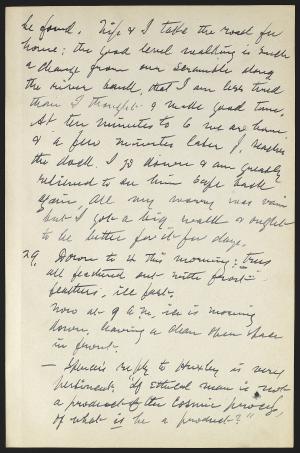 be found. Nip & I take the road for
home; the good level walking is such
a change from our scramble along
the river bank, that I am less tired
than I thought & made good time.
At ten minutes to 6 we are home
& a few minutes later J. reaches
the dock. I go down & am greatly
relieved to see him safe back
again. All my worry was vain
but I got a big walk & ought
to be better for it for days.
29. Down to 4 this morning; trees
all feathered out with frost
feathers, ice fast.
Now at 9 A.M. ice is moving
down, leaving a clear open space
in front.
— Spencer's reply to Huxley is very
pertinent, "if Ethical man is not
a product of the Cosmic process,
of what is he a product?"